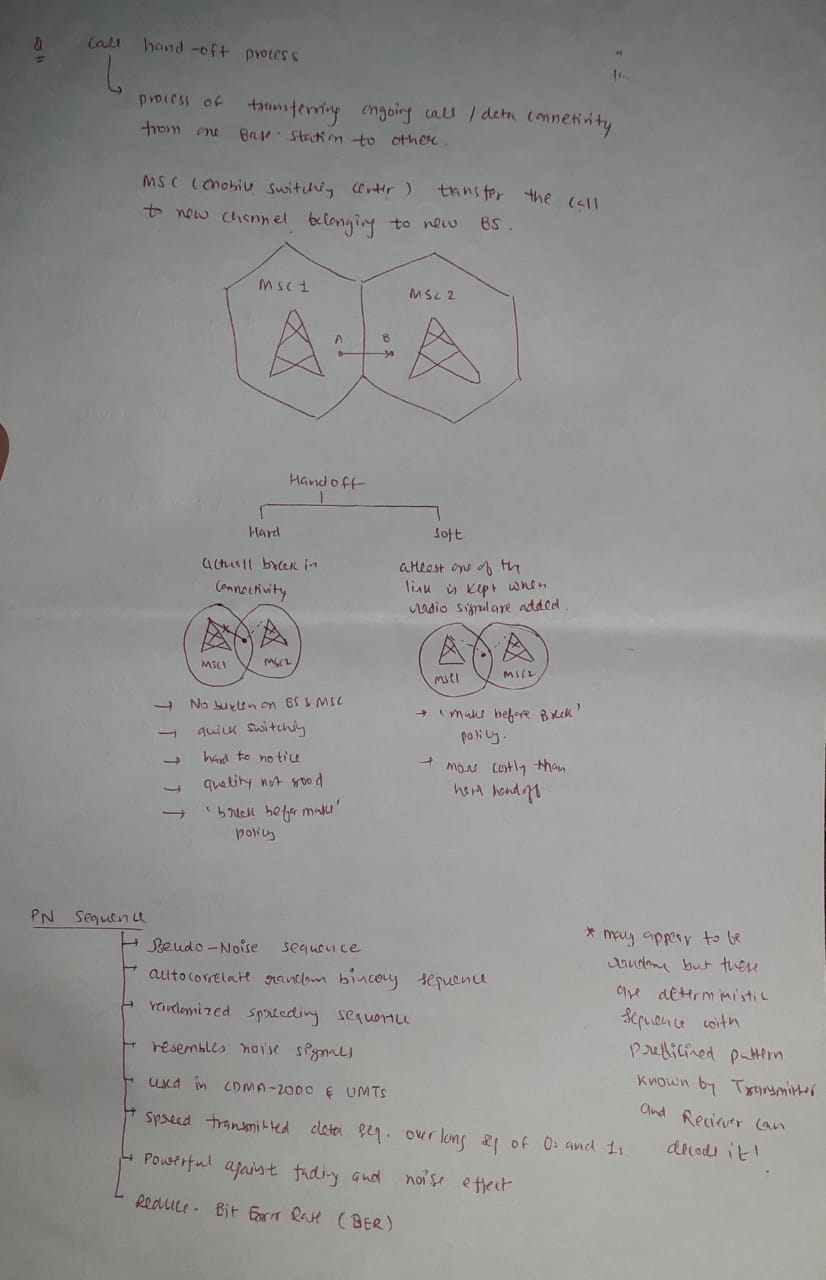 Q call hand-off process
process of transferring ongoing call / data connetivity
from one Base station to other.
MSC (mobile switching center) transfer the call
to new channel belonging to new BS.
MSC 1
MSC 2
A
B
Handoff
Hard
actuall break in
connectivity
MSC1
MSC2
→ No burden on BS & MSC
→ quick switching
→ hard to notice
→ quality not good
→ 'break befor make'
policy
Soft
atleast one of the
link is kept when
radio signal are added.
MSC1
MSC2
→ 'make before Break'
policy.
→ more costly than
hard handoff.
PN Sequence
Pseudo-Noise sequence
autocorrelate random binary sequence
randomized spreading sequence
resembles noise signals
used in CDMA-2000 & UMTS
spreed transmitted data seq. over long sq of 0s and 1s.
Powerful against fading and noise effect
Reduce Bit Error Rate (BER)
* may appear to be
random but these
are deterministic
sequence with
predificined pattern
known by Transmitter
and Reciever can
decode it!